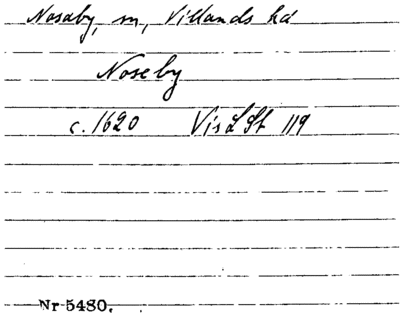 Nosaby, sn, Villands hd
Noseby
c. 1620 Vis L St 119
Nr 5480.